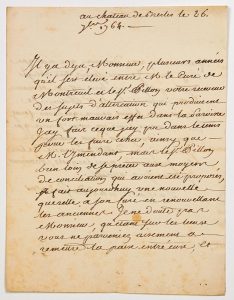 au chateau de dresles le 26.
7bre 1764.
Il y a deja, Monsieur, plusieurs années
qu'il s'est elevé entre M. le Curé de
Montreuil et le Sr. Pillon votre receveur
des sujets d'altercation qui produisent
un fort mauvais effet dans la paroisse
J'ay fait ce que j'ay pu dans le tems
pour les faire cesser, ainsy que
M. mais le Sr. Pillon,
bien loin de se preter aux moyens
de conciliation qui avoient été proposés,
fait aujourdhuy une nouvelle
querelle a son curé en renouvellant
les anciennes. Je ne doute pas
Monsieur qu'etant sur les lieux
vous ne parveniez aisement a
remettre la paix entre eux, et